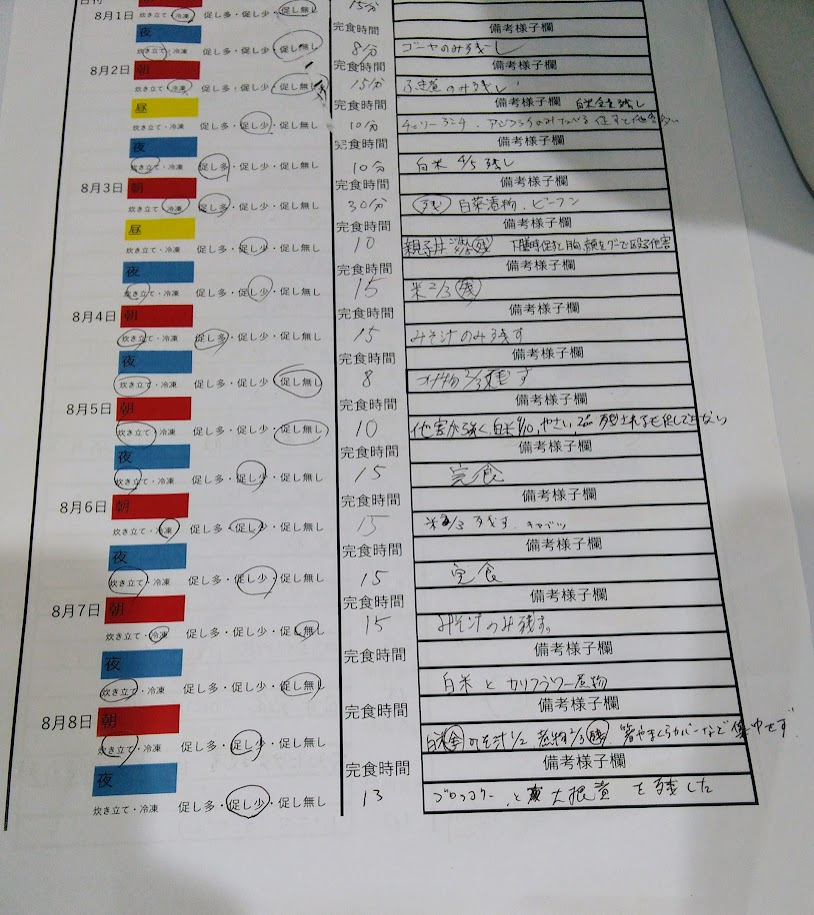 日付
15分
8月1日 炊き立て・冷凍 促し多・促し少・促し無し
夜 完食時間 備考様子欄
炊き立て・冷凍 促し多・促し少・促し無し 8分 ゴーヤのみ残し
8月2日 朝 完食時間 備考様子欄
炊き立て・冷凍 促し多・促し少・促し無し 15分 のみ残し
昼 完食時間 備考様子欄 残し
炊き立て・冷凍 促し多・促し少・促し無し 10分
夜 完食時間 備考様子欄
炊き立て・冷凍 促し多・促し少・促し無し 10分 白米 4/5 残し
8月3日 朝 完食時間 備考様子欄
炊き立て・冷凍 促し多・促し少・促し無し 30分 残 白菜漬物、ビーフン
昼 完食時間 備考様子欄
炊き立て・冷凍 促し多・促し少・促し無し 10 親子丼 残 下膳時 胸、顔をグーで 他害
夜 完食時間 備考様子欄
炊き立て・冷凍 促し多・促し少・促し無し 15 米2/3 残
8月4日 朝 完食時間 備考様子欄
炊き立て・冷凍 促し多・促し少・促し無し 15 みそ汁のみ残す
夜 完食時間 備考様子欄
炊き立て・冷凍 促し多・促し少・促し無し 8 す
8月5日 朝 完食時間 備考様子欄
炊き立て・冷凍 促し多・促し少・促し無し 10 他害が強く、白米 やさい、
夜 完食時間 備考様子欄
炊き立て・冷凍 促し多・促し少・促し無し 15 完食
8月6日 朝 完食時間 備考様子欄
炊き立て・冷凍 促し多・促し少・促し無し 15 米2/3 残す、キャベツ
夜 完食時間 備考様子欄
炊き立て・冷凍 促し多・促し少・促し無し 15 完食
8月7日 朝 完食時間 備考様子欄
炊き立て・冷凍 促し多・促し少・促し無し 15 みそ汁のみ残す。
夜 完食時間 備考様子欄
炊き立て・冷凍 促し多・促し少・促し無し 白米とカリフラワー煮物
8月8日 朝 完食時間 備考様子欄
炊き立て・冷凍 促し多・促し少・促し無し 白米 全 みそ汁1/2 煮物2/3 残 箸やまくらカバーなどで集中せず
夜 完食時間 備考様子欄
炊き立て・冷凍 促し多・促し少・促し無し 13 ブロッコリー、と 大根煮を残した